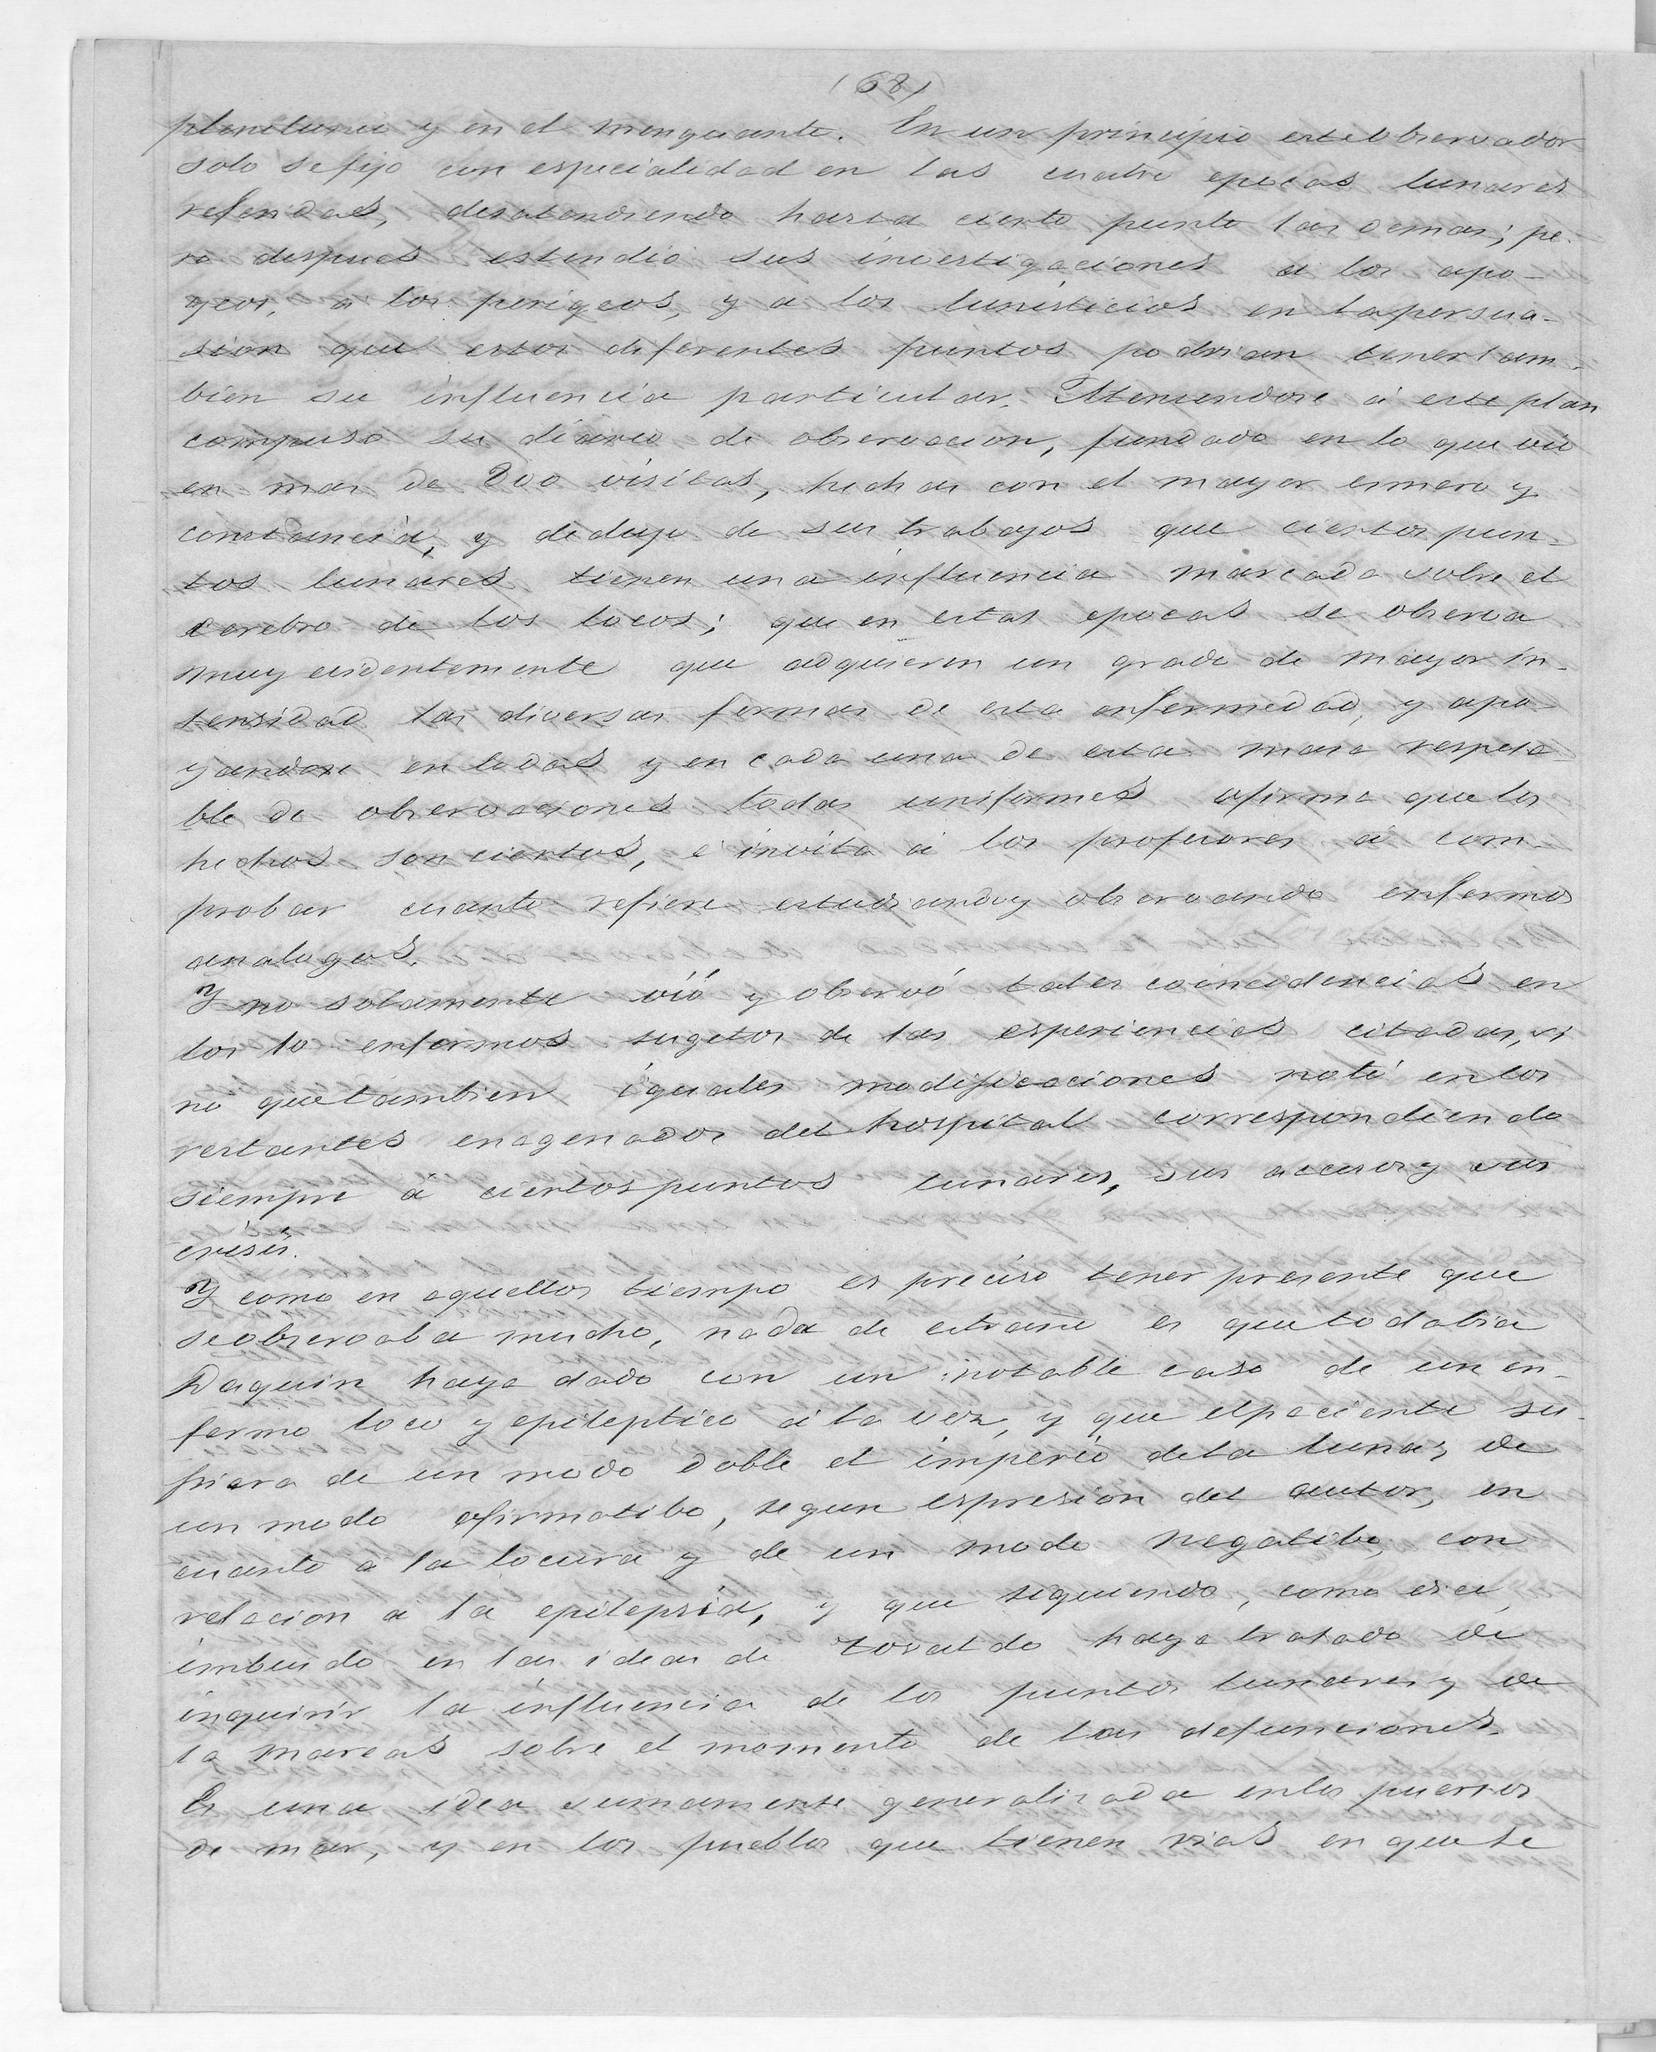 (68)
plenilunio y en el menguante. En un principio este observador
solo se fijo con especialidad en las cuatro epocas lunares
referidas, desatendiendo hasta cierto punto las demas; pe-
ro despues estendio sus investigaciones a los apo-
geos, a los perigeos, y a los lunisticios en la persua-
sion que estos diferentes puntos podrian tener tam-
bien su influencia particular. Ateniendose á este plan
compuso su diario de observacion, fundado en lo que vió
en mas de 800 visitas, hechas con el mayor esmero y
constancia, y dedujo de sus trabajos que ciertos pun-
tos lunares tienen una influencia marcada sobre el
cerebro de los locos; que en estas epocas se observa
muy evidentemente que adquieren un grado de mayor in-
tensidad las diversas formas de esta enfermedad, y apo-
yandose en todas y en cada una de esta masa respeta-
ble de observaciones todas uniformes afirma que los
hechos son ciertos, é invita á los profesores á com-
probar cuanto refiere estudiando y observando enfermos
analogos.
Y no solamente vió y observó tales coincidencias en
los 10 enfermos sugetos de las esperiencias citadas, si
nó que tambien iguales modificaciones notó en los
restantes enagenados del hospital correspondiendo
siempre á ciertos puntos lunares, sus accesos y sus
crisis.
Y como en aquellos tiempo es preciso tener presente que
se observaba mucho, nada de estraño es que todabia
Daquin haya dado con un notable caso de un en-
fermo loco y epileptico á la vez, y que el paciente su-
friera de un modo doble el imperio de la luna; de
un modo afirmatibo, segun espresion del autor, en
cuanto á la locura y de un modo negatibo, con
relacion á la epilepsia, y que siguiendo, como
imbuido en las ideas de Toraldo haya tratado de
inquirir la influencia de los puntos lunares y de
la mareas sobre el momento de las defunciones.
Es una idea sumamente generalizada en los puertos
de mar, y en los pueblos que tienen rias en que se